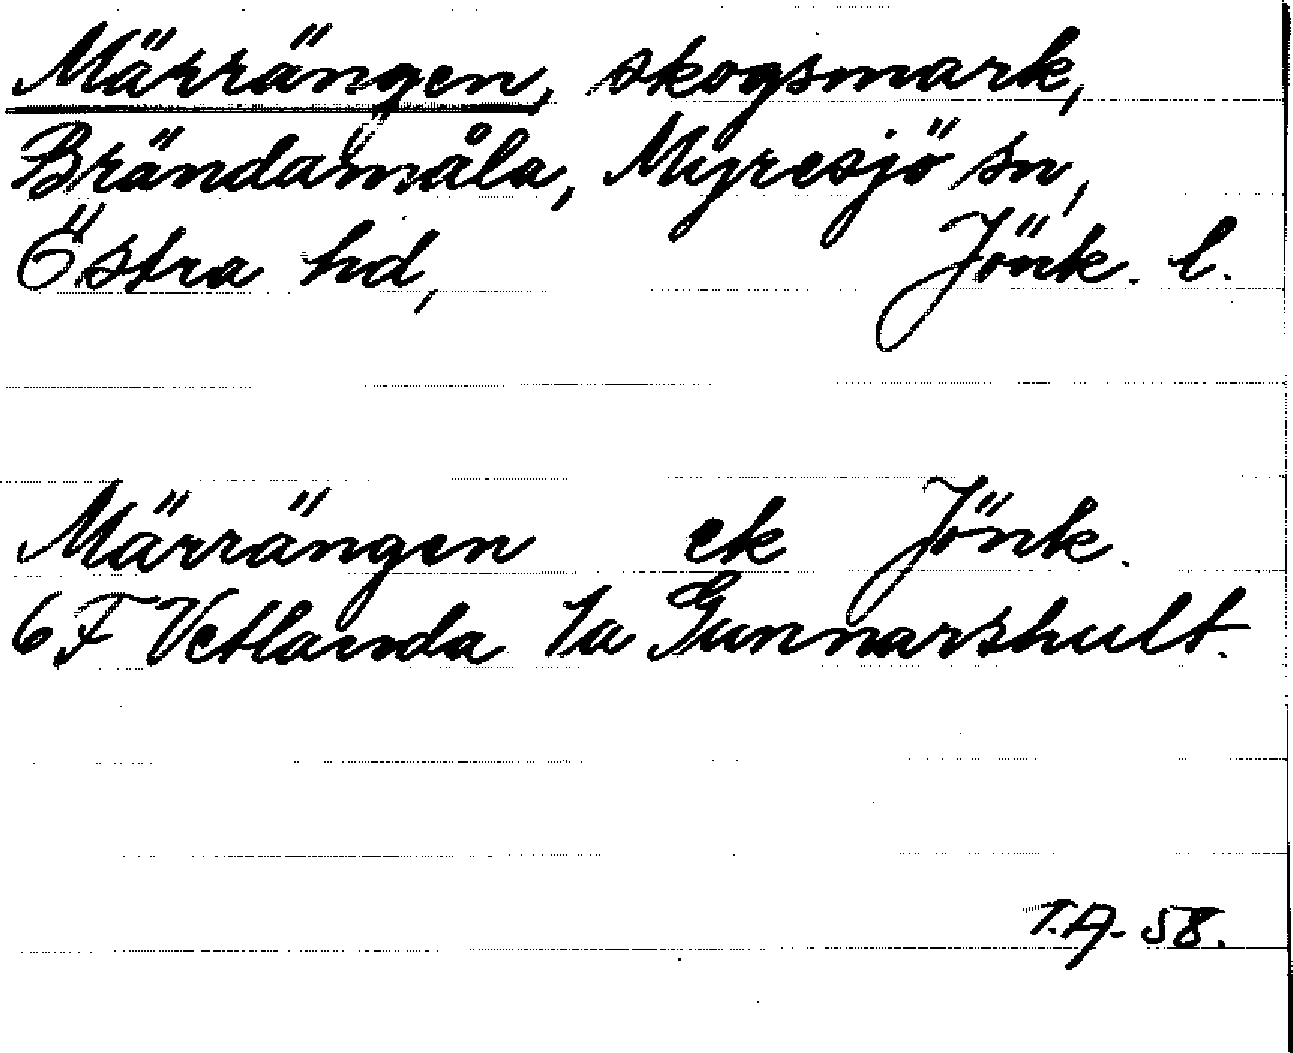 Märrängen, skogsmark,
Brändamåla, Myresjö sn,
Östra hd, Jönk. l.
Märrängen ek Jönk.
6F Vetlanda 1a Gunnarshult.
T.A-58.